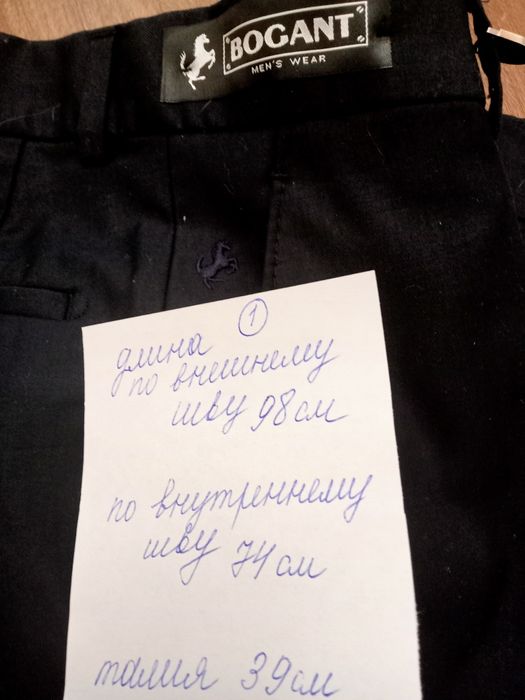 BOGANT
MEN'S WEAR
1
длина
по внешнему
шву 98 см
по внутреннему
шву 74 см
талия 39 см